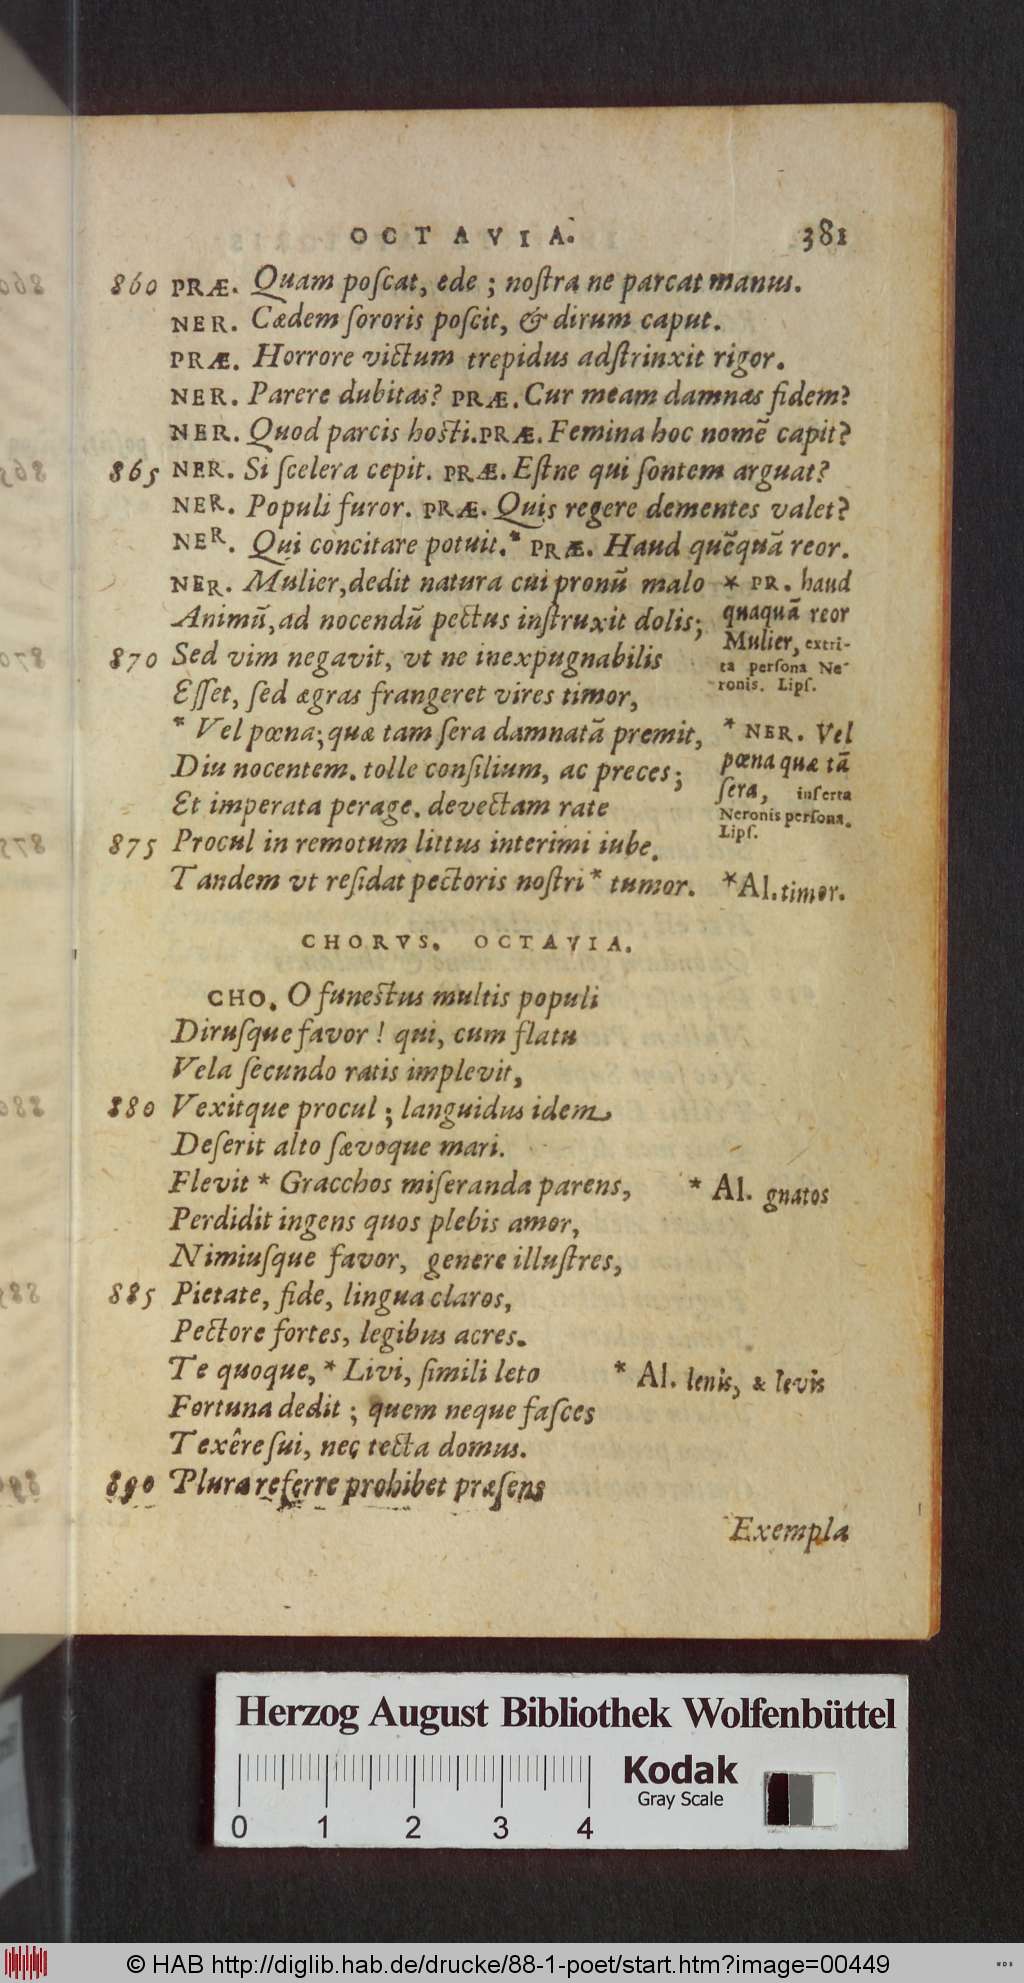 OCTAVIA. 381
860 PRÆ. Quam poſcat, ede ; noſtra ne parcat manus.
NER. Cædem ſororis poſcit, & dirum caput.
PRÆ. Horrore victum trepidus adſtrinxit rigor.
NER. Parere dubitas? PRÆ. Cur meam damnas fidem?
NER. Quod parcis hoſti. PRÆ. Femina hoc nomẽ capit?
865 NER. Si ſcelera cepit. PRÆ. Eſtne qui ſontem arguat?
NER. Populi furor. PRÆ. Quis regere dementes valet?
NER. Qui concitare potuit.* PRÆ. Haud quẽquã reor.
NER. Mulier, dedit natura cui pronũ malo
Animũ, ad nocendũ pectus inſtruxit dolis;
870 Sed vim negavit, vt ne inexpugnabilis
Eſſet, ſed ægras frangeret vires timor,
* Vel pœna; quæ tam ſera damnatã premit,
Diu nocentem. tolle conſilium, ac preces;
Et imperata perage. devectam rate
875 Procul in remotum littus interimi iube.
Tandem vt reſidat pectoris noſtri * tumor.
* PR. haud
quaquã reor
Mulier, extri-
ta perſona Ne-
ronis. Lipſ.
* NER. Vel
pœna quæ tã
ſera, inſerta
Neronis perſona.
Lipſ.
*Al. timor.
CHORVS. OCTAVIA.
CHO. O funeſtus multis populi
Diruſque favor ! qui, cum flatu
Vela ſecundo ratis implevit,
880 Vexitque procul ; languidus idem
Deſerit alto ſævoque mari.
Flevit * Gracchos miſeranda parens,
* Al. gnatos
Perdidit ingens quos plebis amor,
Nimiuſque favor, genere illuſtres,
885 Pietate, fide, lingua claros,
Pectore fortes, legibus acres.
Te quoque, * Livi, ſimili leto
* Al. lenis, & levis
Fortuna dedit ; quem neque faſces
Texêre ſui, nec tecta domus.
890 Plura referre prohibet præſens
Exempla
Herzog August Bibliothek Wolfenbüttel
Kodak
Gray Scale
0 1 2 3 4
© HAB http://diglib.hab.de/drucke/88-1-poet/start.htm?image=00449